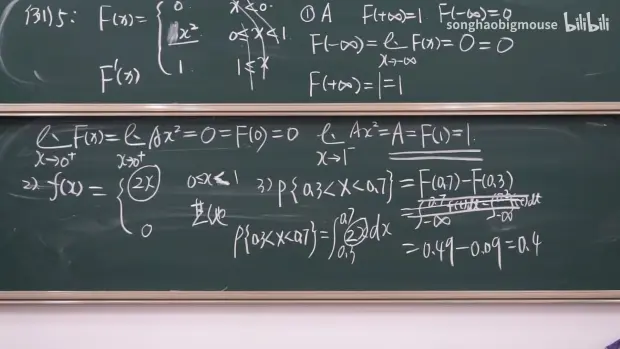 例5: F(x) = { 0 x<0
1x² 0≤x<1
1 1≤x
F'(x)
① A F(+∞)=1 F(-∞)=0
F(-∞) = lim F(x) = 0 = 0
x→-∞
F(+∞) = 1 = 1
songhaobigmouse bilibili
lim F(x) = lim Ax² = 0 = F(0) = 0 lim Ax² = A = F(1) = 1
x→0⁺ x→0⁺ x→1⁻
2) f(x) = { 2x 0≤x<1
0 其他
3) P{0.3<X<0.7} = F(0.7) - F(0.3)
P{0.3<X<0.7} = ∫_0.3^0.7 2x dx
= 0.49 - 0.09 = 0.4